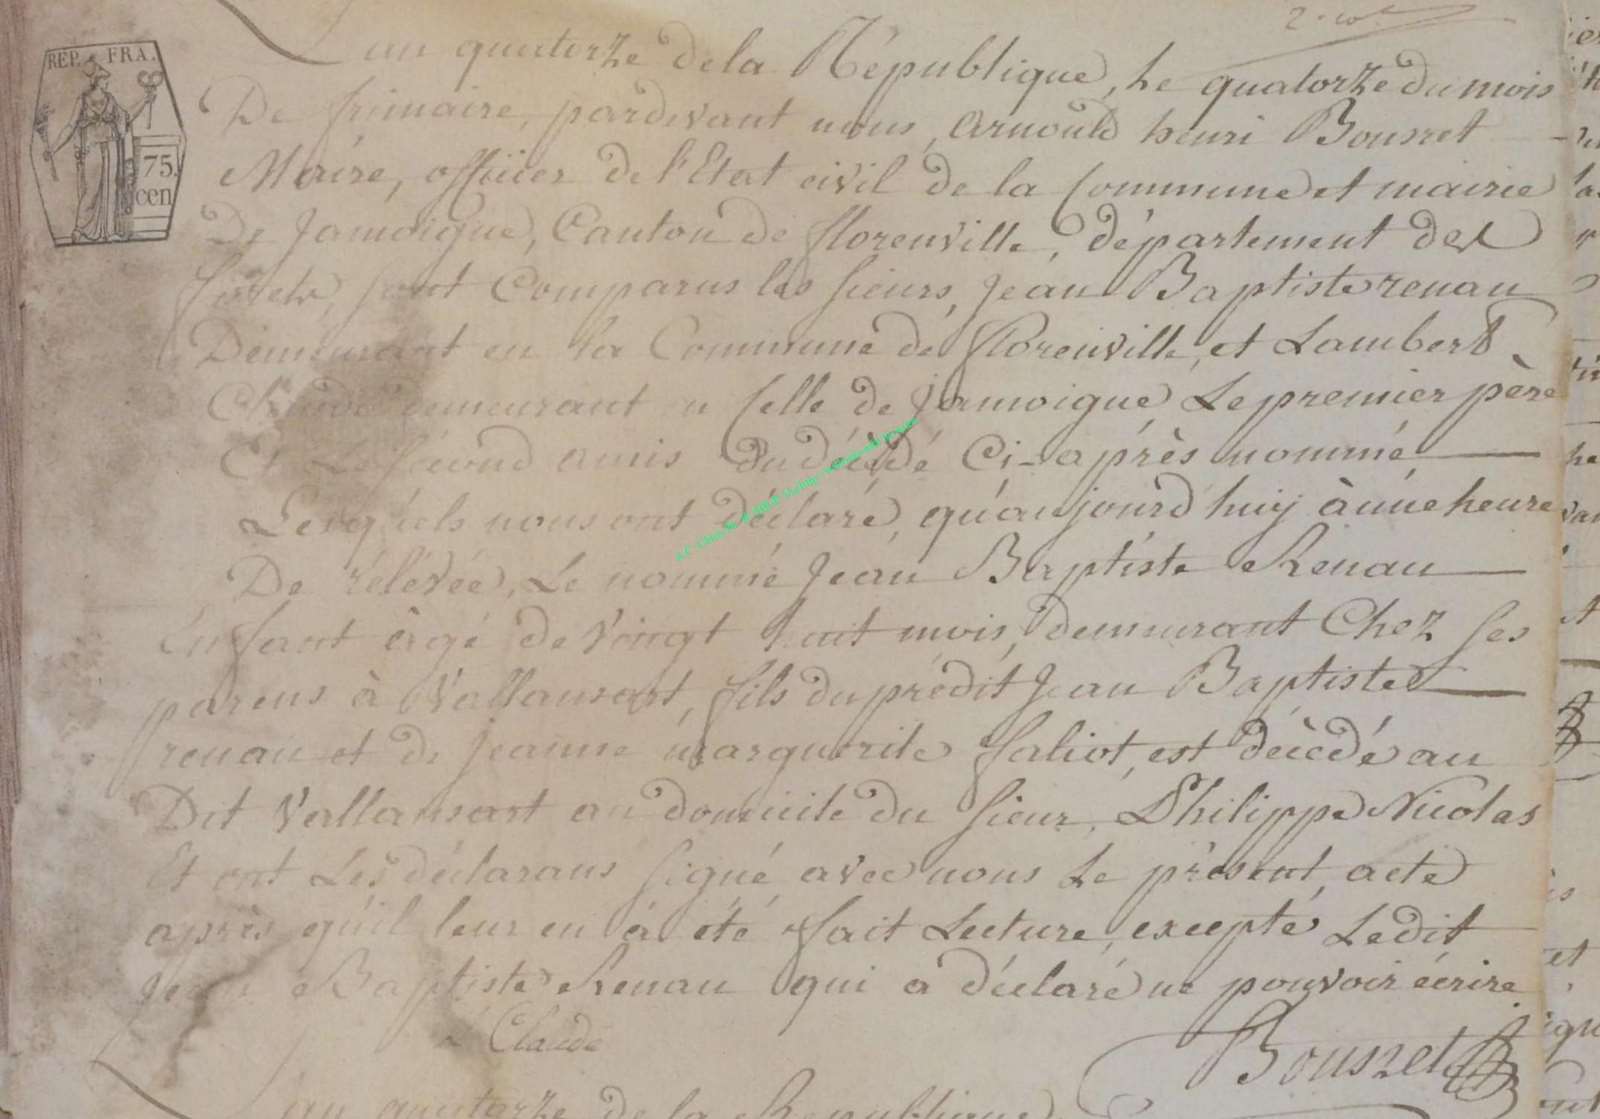 REP. FRA.
75.
cen
L'an quatorze de la République, le quatorze du mois
De frimaire, pardevant nous, Arnould henri Bousret
Maire, officier de l'Etat civil de la Commune et mairie
De Jamoigne, Canton de florenville, département des
forets, sont Comparus les sieurs, Jean Baptiste renau
Demeurant en la Commune de florenville, et Lambert
Claude demeurant en Celle de jamoigne, Le premier père
Et Le second amis du décédé Ci-après nommé
Lesquels nous ont déclaré, qu'aujourd'huy à une heure
De rélévée, Le nommé Jean Baptiste Renau
Enfant àgé de Vingt huit mois, demeurant Chez ses
parens à Vallansart, fils du prédit Jean Baptiste
renau et de jeanne marguerite faliot, est décédé au
Dit Vallansart au domicile du sieur Philippe Nicolas
Et ont Les déclarans signé avec nous Le présent acte
après qu'il leur en à été fait Lecture, excepté Ledit
Jean Baptiste Renau qui a déclaré ne pouvoir écrire
Claude
Bousret
L'an quatorze de la République